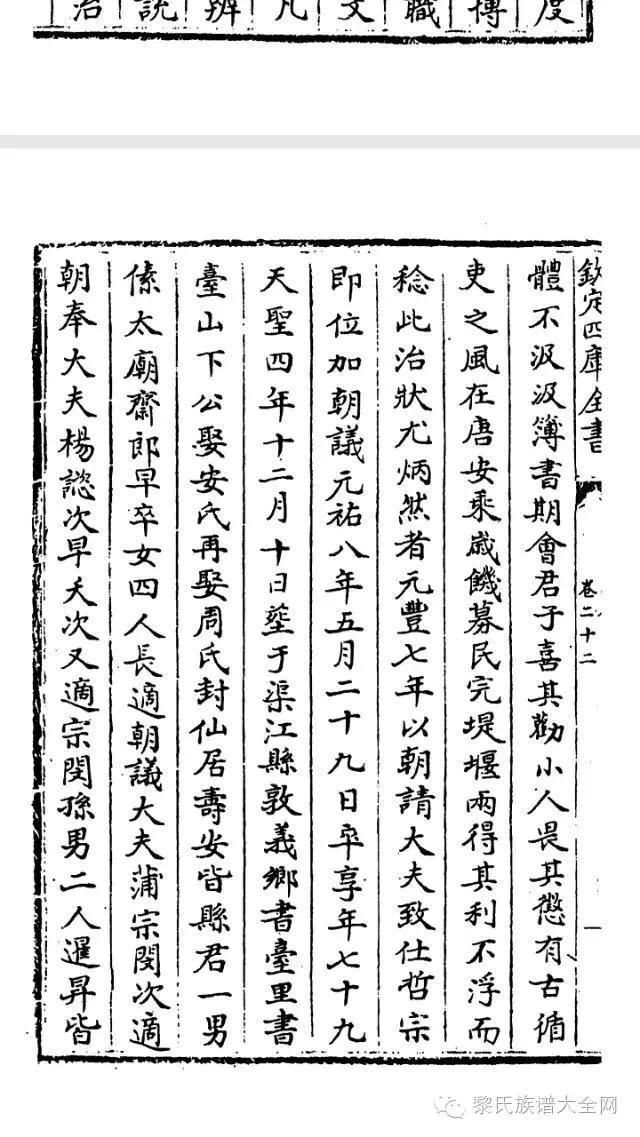 度
博
職
文
凡
辨
說
治
欽定四庫全書
卷二十二
體不汲汲簿書期會君子喜其勸小人畏其懲有古循
吏之風在唐安乘歲饑募民完堤堰兩得其利不浮而
稔此治狀尤炳然者元豐七年以朝請大夫致仕哲宗
即位加朝議元祐八年五月二十九日卒享年七十九
天聖四年十二月十日塟于渠江縣敦義鄉書臺里書
臺山下公娶安氏再娶周氏封仙居壽安皆縣君一男
傃太廟齋郎早卒女四人長適朝議大夫蒲宗閔次適
朝奉大夫楊諗次早夭次又適宗閔孫男二人暹昇皆
黎氏族谱大全网